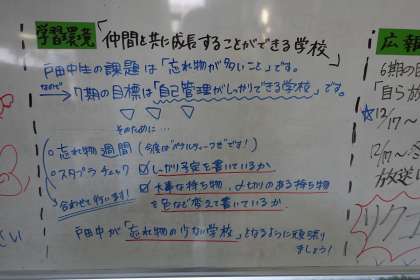 学習環境「仲間と共に成長することができる学校」
戸田中生の課題は「忘れ物が多いこと」です。
なので
→7期の目標は「自己管理がしっかりできる学校」です。
そのために…
○忘れ物週間(今度は です!)
○スタプラチェック ☑しっかり予定を書いているか
合わせて行います!
☑大事な持ち物、〆切りのある持ち物
を色など変えて書いているか
戸田中が「忘れ物の少ない学校」となるように頑張り
ましょう!
広報
6期の目
「自ら放
☆12/17~
12/17~
放送に
リクエ
さい